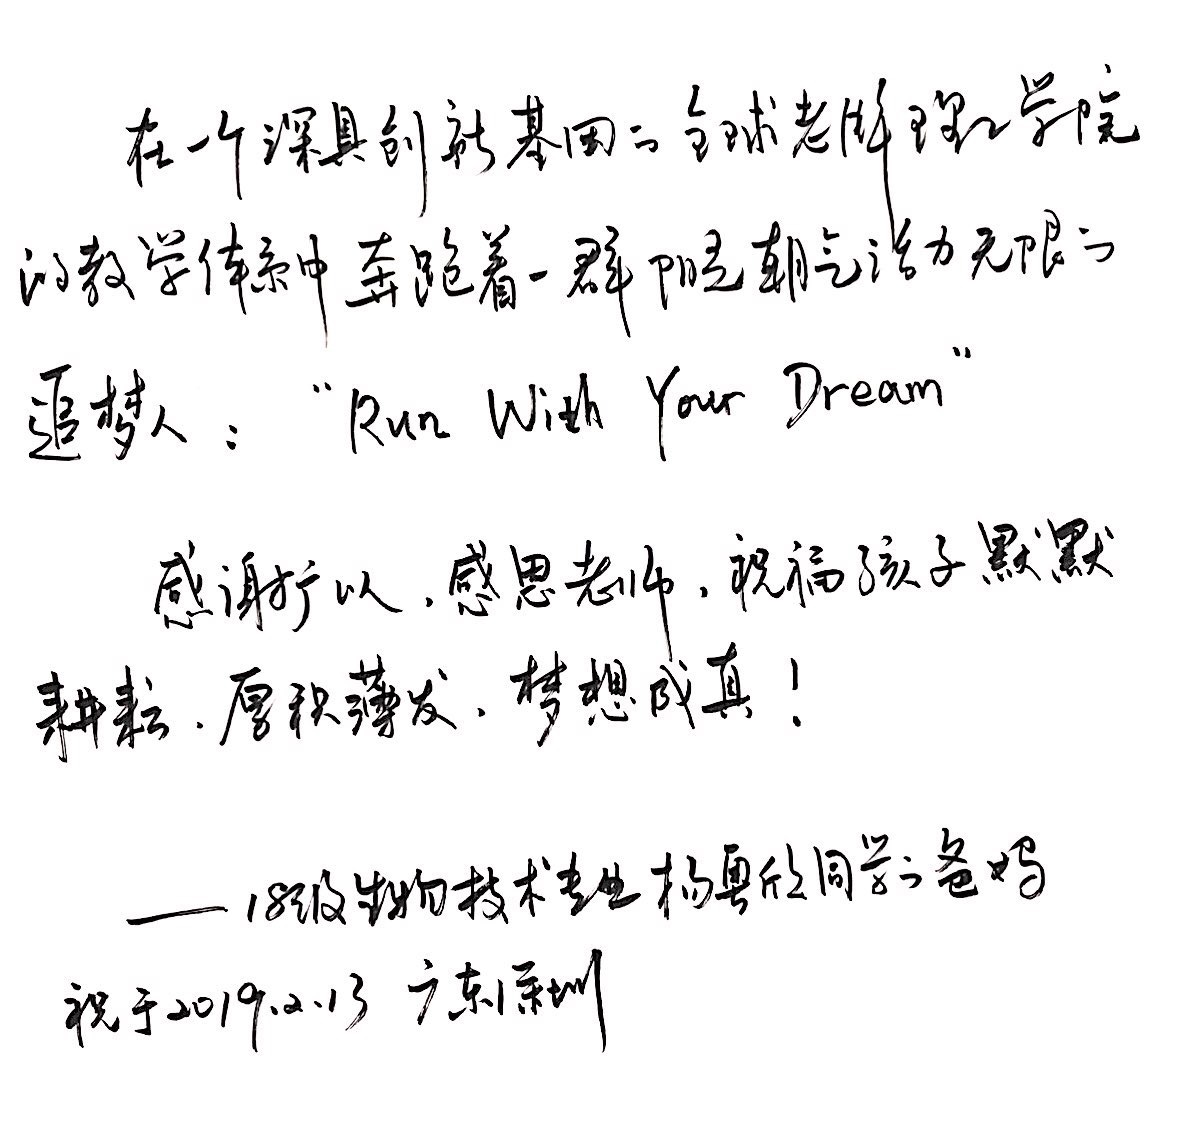 在一个深具创新基因的全球老牌理工学院
的教学体系中奔跑着一群阳光朝气活力无限的
追梦人：“Run With Your Dream”
感谢广以，感恩老师，祝福孩子默默
耕耘，厚积薄发，梦想成真！
——18级生物技术专业杨粤欣同学的爸妈
祝于2019.2.13 广东深圳